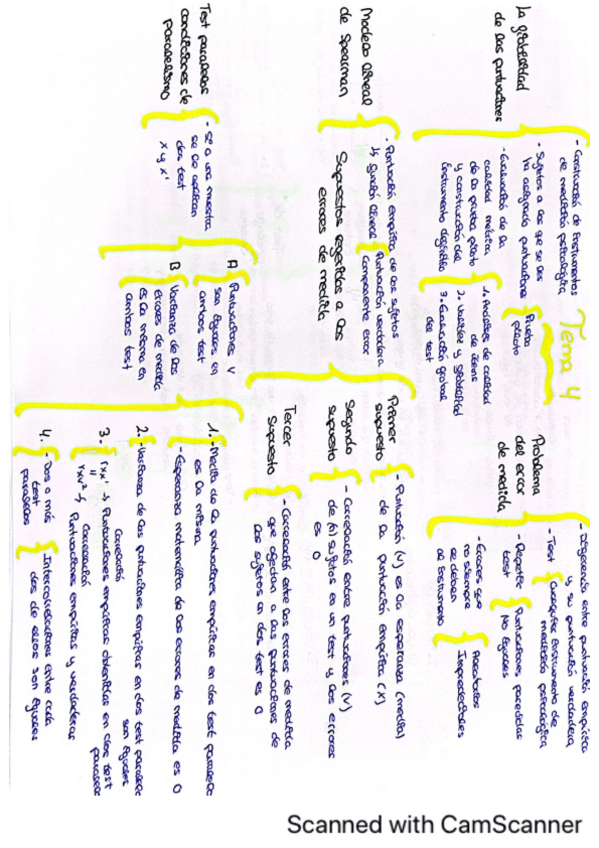 Tema 4
La fiabilidad
de las puntuaciones
- Construcción de instrumentos
de medición psicológica
- Sujetos a los que se les
ha asignado puntuaciones
Prueba
piloto
- Evaluación de la
calidad métrica
de la prueba piloto
y construcción del
instrumento definitivo
1. Análisis de calidad
de ítems
2. Validez y fiabilidad
3. Evaluación global
del test
Problema
del error
de medida
- Diferencia entre puntuación empírica
y su puntuación verdadera
- Test
Cualquier instrumento de
medición psicológica
- Repetir
test
Puntuaciones parecidas
No iguales
- Errores que
no siempre
se deben
al instrumento
Aleatorios
Impredecibles
Modelo lineal
de Spearman
- Puntuación empírica de los sujetos
↳ función lineal
Puntuación verdadera
Componente error
Supuestos referidos a los
errores de medida
Primer
supuesto
- Puntuación (V) es la esperanza (media)
de la puntuación empírica (X)
Segundo
supuesto
- Correlación entre puntuaciones (V)
de (n) sujetos en un test y los errores
es 0
Tercer
supuesto
- Correlación entre los errores de medida
que afectan a las puntuaciones de
los sujetos en dos test es 0
Test paralelos
condiciones de
paralelismo
- Si a una muestra
se le aplican
dos test
x y x'
A
Puntuaciones V
son iguales en
ambos test
B
Varianza de los
errores de medida
es la misma en
ambos test
1. - Media de la puntuaciones empíricas en dos test paralelos
es la misma
- Esperanza matemática de los errores de medida es 0
2. - Varianza de las puntuaciones empíricas en dos test paralelos
son iguales
Correlación
3. - rxx' → Puntuaciones empíricas obtenidas en dos test
paralelos
"
Correlación
rxv² → Puntuaciones empíricas y verdaderas
4. - Dos o más
test
paralelos
Intercorrelaciones entre cada
dos de ellos son iguales
Scanned with CamScanner